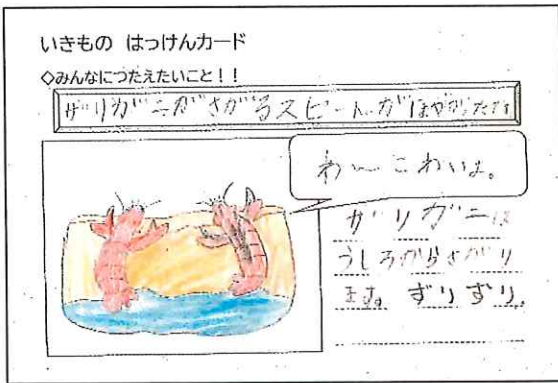 いきもの はっけんカード
◇みんなにつたえたいこと！！
ザリガニがさがるスピードがはやかったです
わ～こわいよ。
ザリガニは
うしろからさがり
ます。ずりずり。